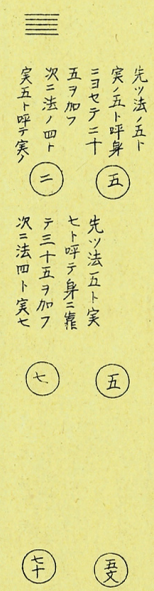 先ツ法ノ五ト
実ノ五ト呼身
ニヨセテ二十
五ヲ加フ
次ニ法ノ四ト
実五ト呼テ実ノ
五
二
先ツ法五ト実
七ト呼テ身ニ
テ三十五ヲ加フ
次ニ法四ト実七
五
七
五文
七十